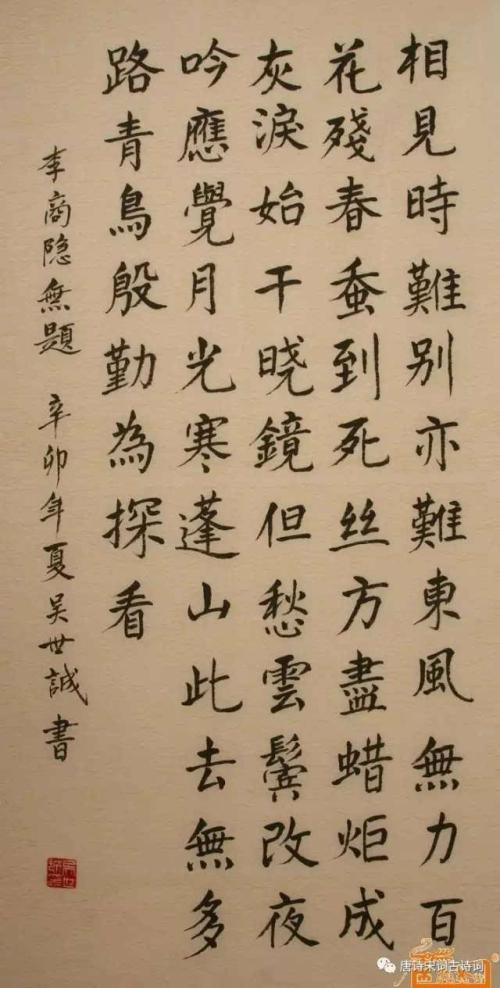 相見時難别亦難東風無力百
花殘春蚕到死丝方盡蜡炬成
灰淚始干晓鏡但愁雲鬓改夜
吟應覺月光寒蓬山此去無多
路青鳥殷勤為探看
李商隐無題 辛卯年夏吴世誠書
唐诗宋词古诗词